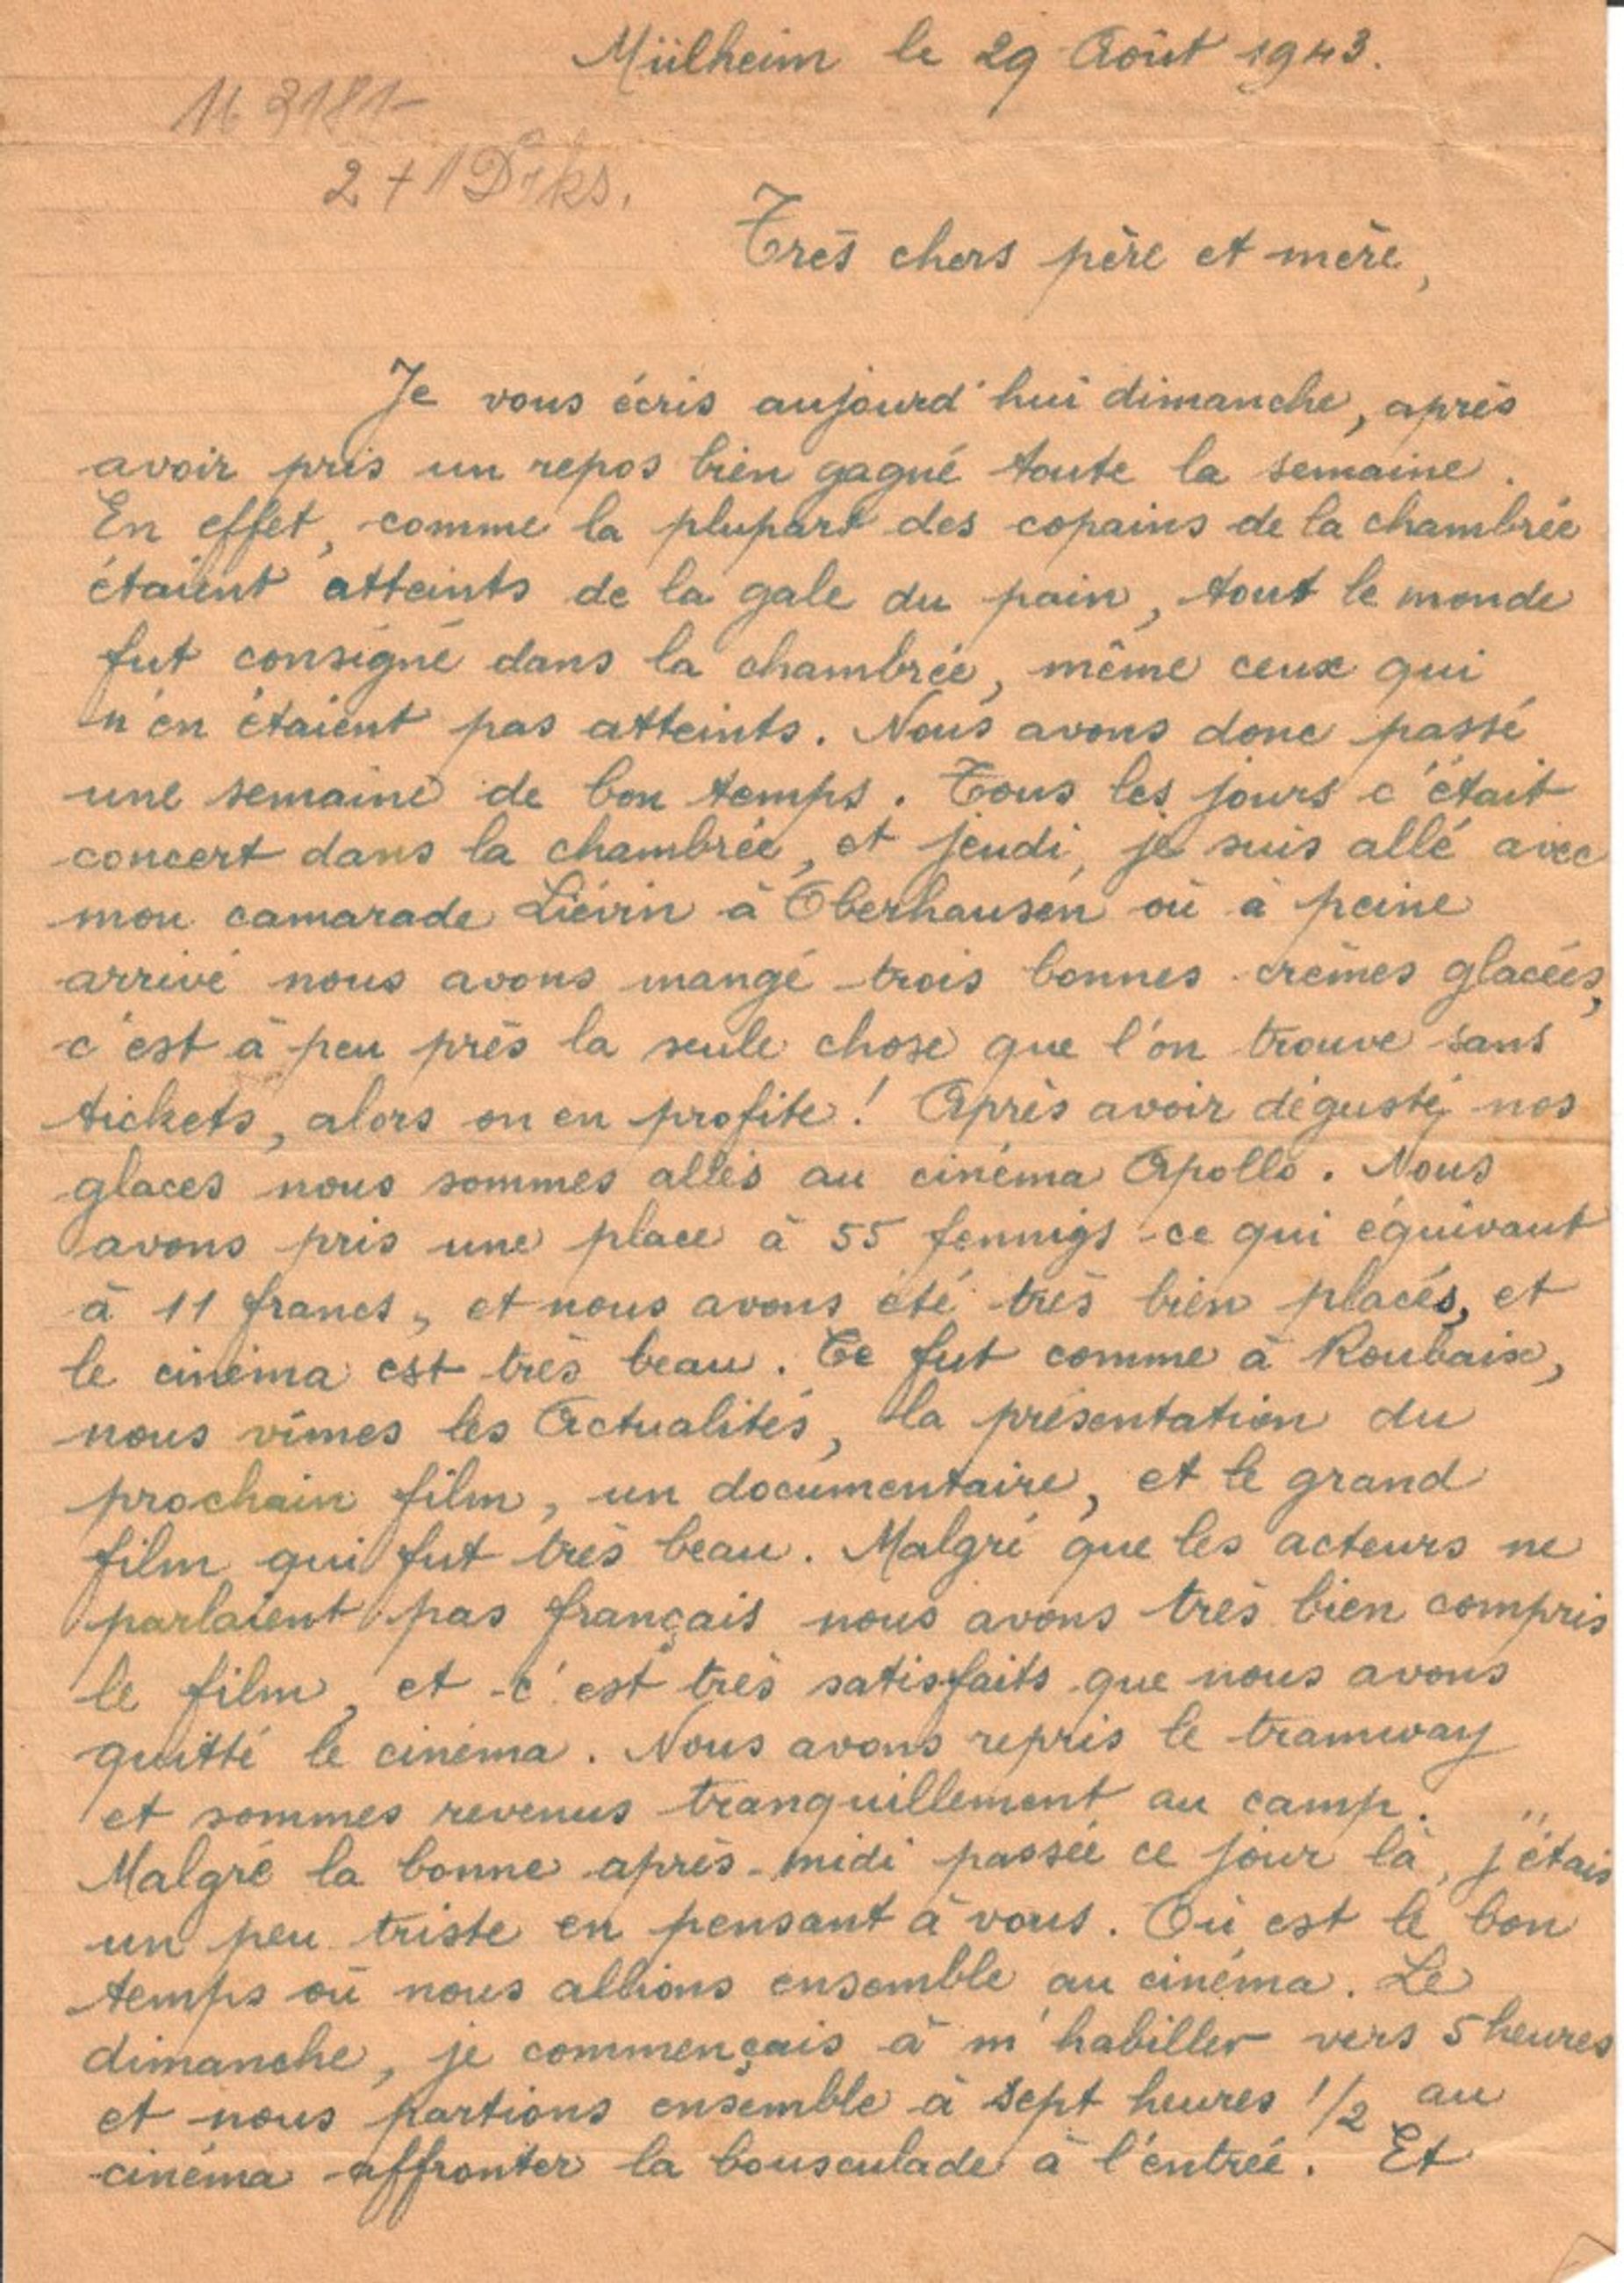 Mülheim le 29 Août 1943.
2 + 1 Drks.
Très chers père et mère,
Je vous écris aujourd'hui dimanche, après
avoir pris un repos bien gagné toute la semaine.
En effet, comme la plupart des copains de la chambrée
étaient atteints de la gale du pain, tout le monde
fut consigné dans la chambrée, même ceux qui
n'en étaient pas atteints. Nous avons donc passé
une semaine de bon temps. Tous les jours c'était
concert dans la chambrée, et jeudi, je suis allé avec
mon camarade Liévin à Oberhausen où à peine
arrivé nous avons mangé trois bonnes crèmes glacées,
c'est à peu près la seule chose que l'on trouve sans
tickets, alors on en profite! Après avoir dégusté nos
glaces nous sommes allés au cinéma Apollo. Nous
avons pris une place à 55 fennigs ce qui équivaut
à 11 francs, et nous avons été très bien placés, et
le cinéma est très beau. Ce fut comme à Roubaix,
nous vîmes les Actualités, la présentation du
prochain film, un documentaire, et le grand
film qui fut très beau. Malgré que les acteurs ne
parlaient pas français nous avons très bien compris
le film, et c'est très satisfaits que nous avons
quitté le cinéma. Nous avons repris le tramway
et sommes revenus tranquillement au camp.
Malgré la bonne après-midi passée ce jour là, j'étais
un peu triste en pensant à vous. Où est le bon
temps où nous allions ensemble au cinéma. Le
dimanche, je commençais à m'habiller vers 5 heures
et nous partions ensemble à sept heures 1/2 au
cinéma affronter la bousculade à l'entrée. Et